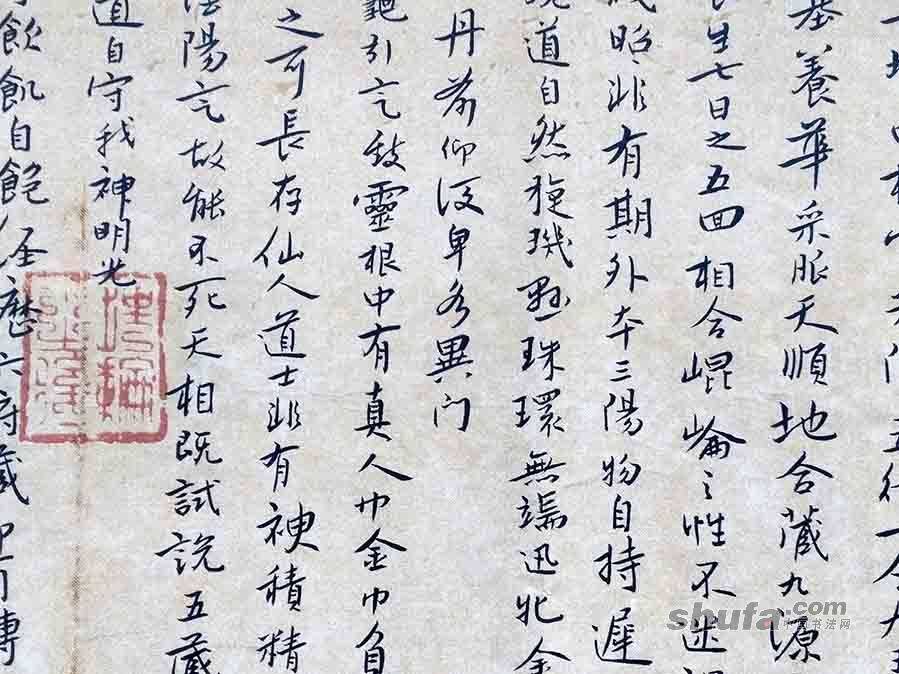 五行一合九
基養華采服天順地合藏九源
生七日之五回相合崐崘之性不迷
昭々非有期外本三陽物自持遲
道自然琁璣懸珠環無端迅牝金
丹前仰後卑各異門
引之致靈根中有真人巾金巾負
之可長存仙人道士非有神積精
陰陽之故能不死天相既試說五藏
道自守我神明光
飲飢自飽經歷六府藏卯酉轉
shufa.com
中国书法网